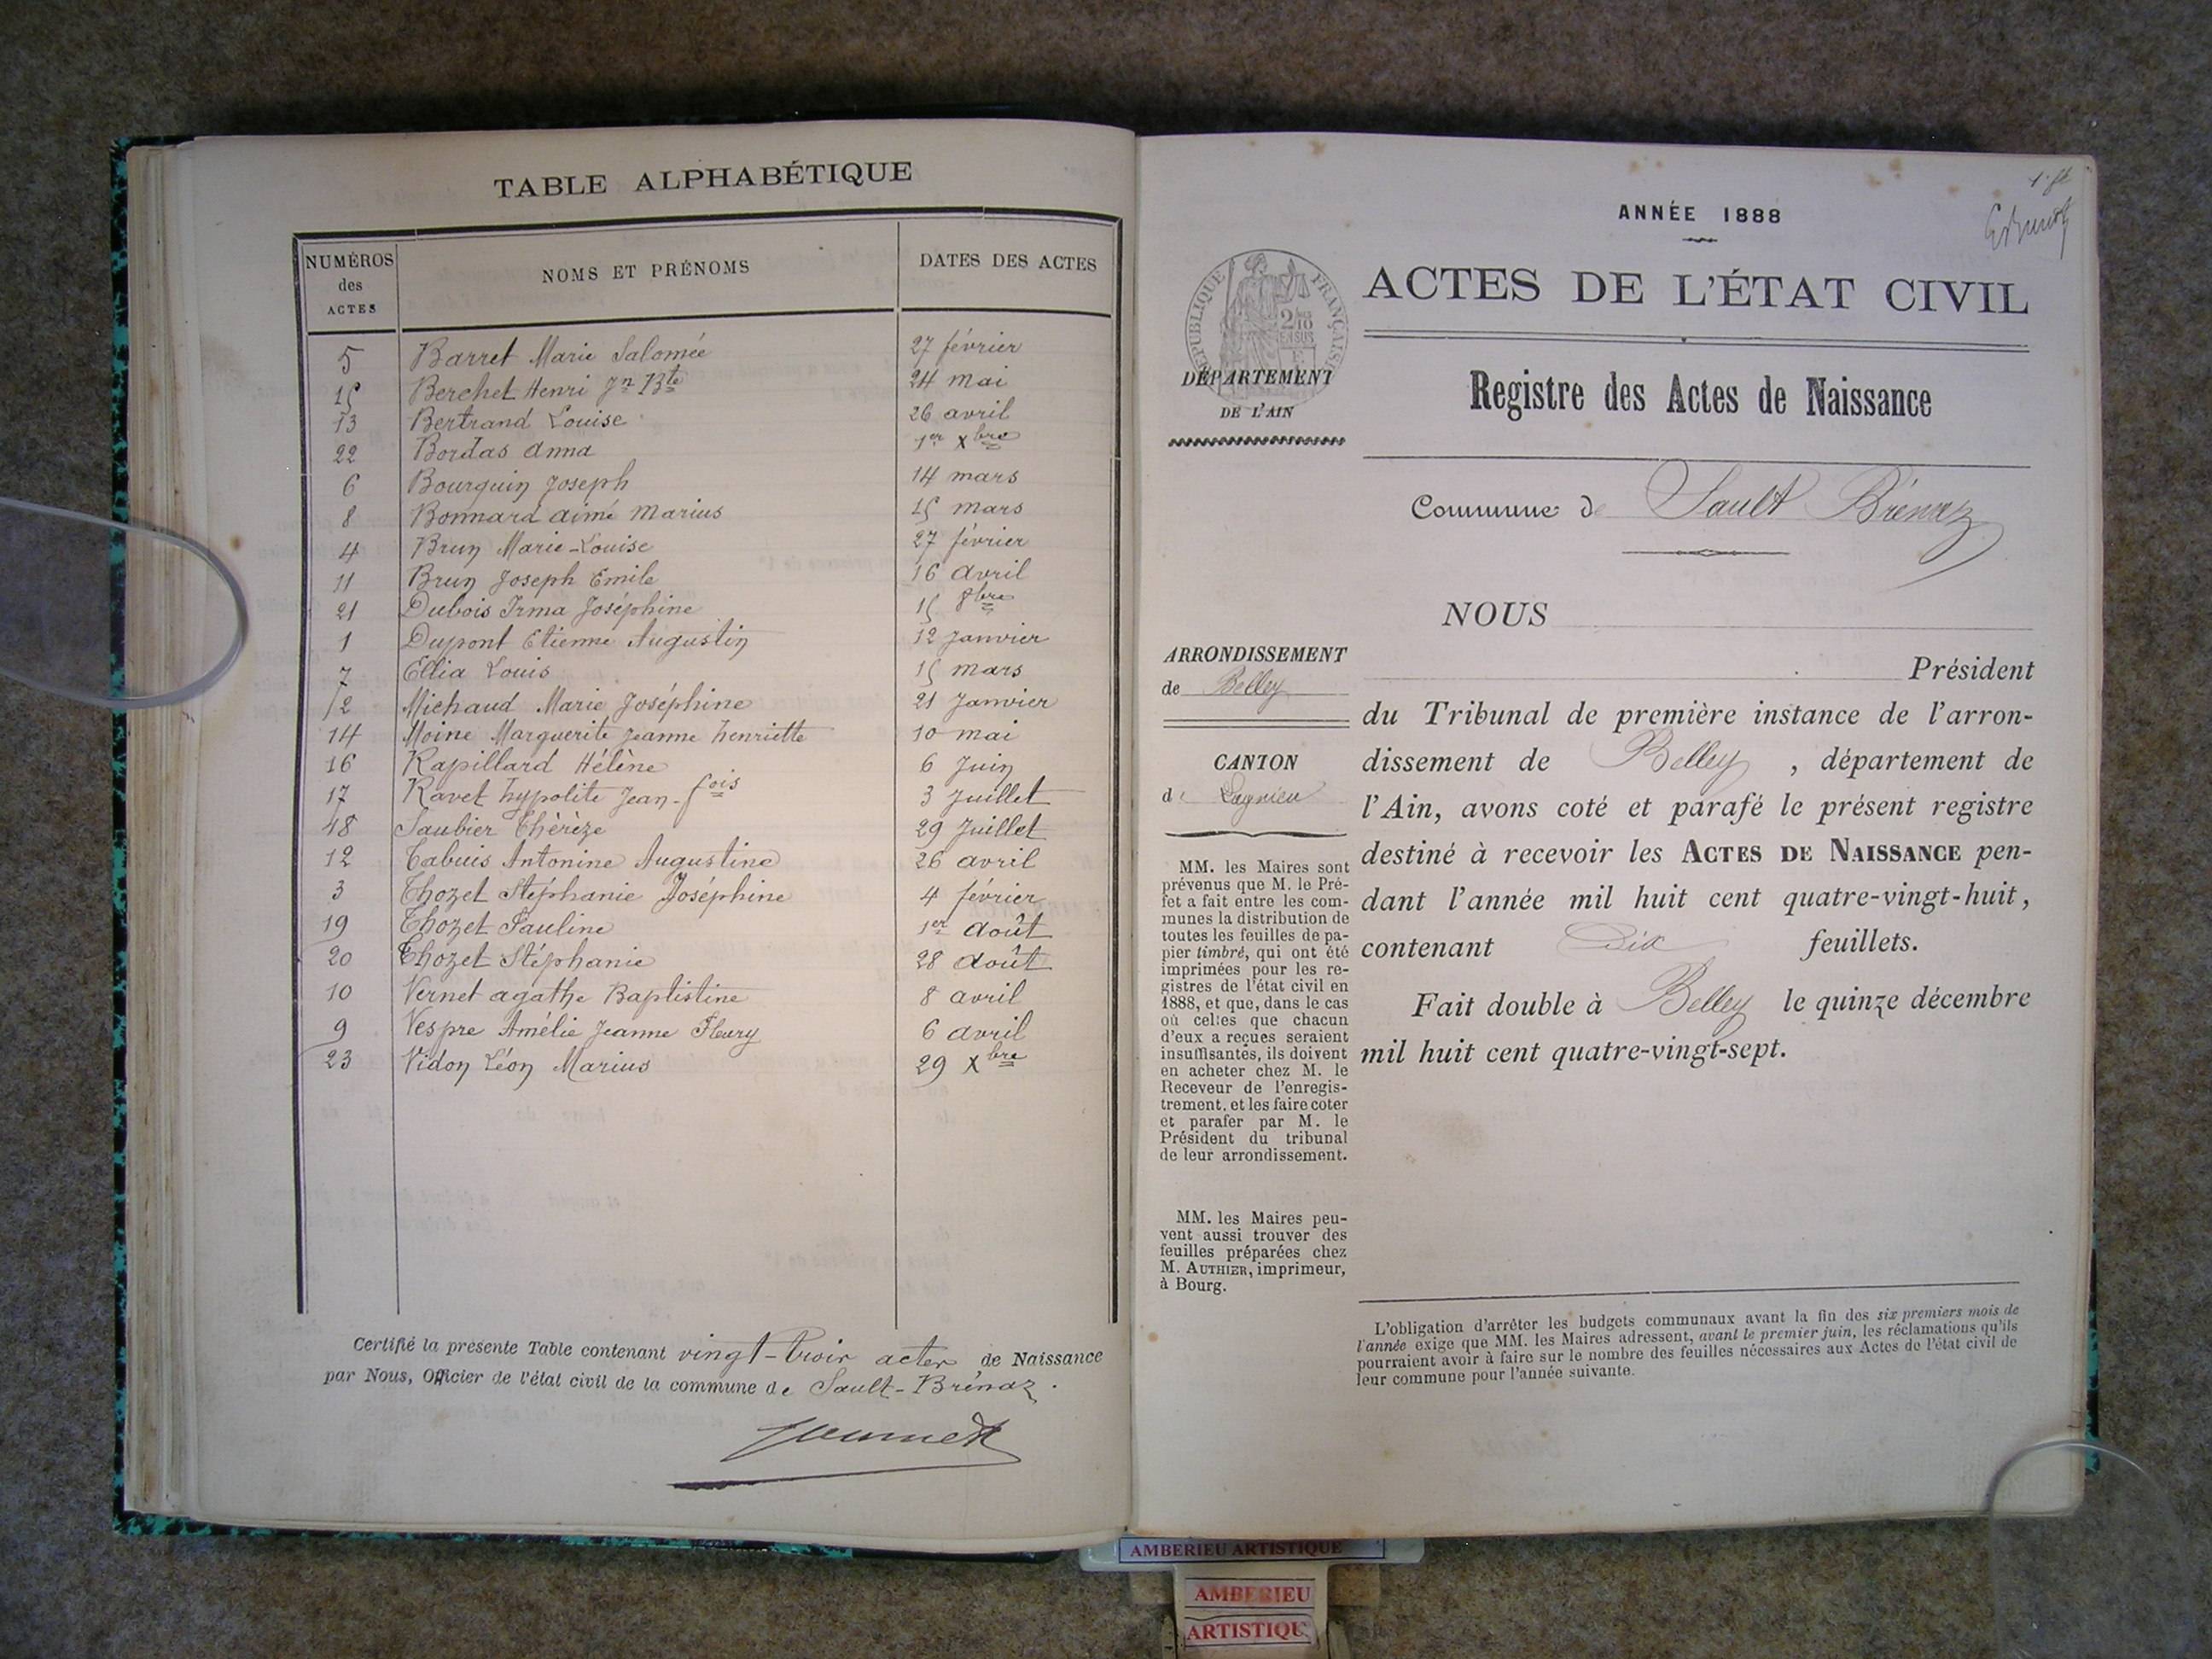 TABLE ALPHABÉTIQUE
NUMÉROS des ACTES NOMS ET PRÉNOMS DATES DES ACTES
5 Barret Marie Salomée 27 février
15 Berchet Henri Jn Bte 24 mai
13 Bertrand Louise 26 avril
22 Bordas Anna 1er Xbre
6 Bourguin Joseph 14 mars
8 Bonnard Aimé Marius 15 mars
4 Brun Marie-Louise 27 février
11 Brun Joseph Emile 16 avril
21 Dubois Irma Joséphine 15 8bre
1 Dupont Etienne Augustin 12 Janvier
7 Ellia Louis 15 mars
2 Michaud Marie Joséphine 21 Janvier
14 Moine Marguerite Jeanne henriette 10 mai
16 Rapillard Hélène 6 Juin
17 Ravet hypolite Jean-fois 3 Juillet
18 Saubier Thérèze 29 Juillet
12 Tabuis Antonine Augustine 26 avril
3 Thozet Stéphanie Joséphine 4 février
19 Thozet Pauline 1er août
20 Thozet Stéphanie 28 août
10 Vernet agathe Baptistine 8 avril
9 Vespre Amélie Jeanne Fleury 6 avril
23 Vidon Léon Marius 29 Xbre
Certifié la présente Table contenant vingt-trois actes de Naissance
par Nous, Officier de l'état civil de la commune de Sault-Brénaz.
ANNÉE 1888
ACTES DE L'ÉTAT CIVIL
RÉPUBLIQUE FRANÇAISE
DÉPARTEMENT
DE L'AIN
Registre des Actes de Naissance
Commune de Sault Brénaz
NOUS
ARRONDISSEMENT
de Belley
CANTON
de Lagnieu
Président
du Tribunal de première instance de l'arron-
dissement de Belley, département de
l'Ain, avons coté et parafé le présent registre
destiné à recevoir les ACTES DE NAISSANCE pen-
dant l'année mil huit cent quatre-vingt-huit,
contenant Dix feuillets.
Fait double à Belley le quinze décembre
mil huit cent quatre-vingt-sept.
MM. les Maires sont
prévenus que M. le Pré-
fet a fait entre les com-
munes la distribution de
toutes les feuilles de pa-
pier timbré, qui ont été
imprimées pour les re-
gistres de l'état civil en
1888, et que, dans le cas
où celles que chacun
d'eux a reçues seraient
insuffisantes, ils doivent
en acheter chez M. le
Receveur de l'enregis-
trement, et les faire coter
et parafer par M. le
Président du tribunal
de leur arrondissement.
MM. les Maires peu-
vent aussi trouver des
feuilles préparées chez
M. AUTHIER, imprimeur,
à Bourg.
L'obligation d'arrêter les budgets communaux avant la fin des six premiers mois de
l'année exige que MM. les Maires adressent, avant le premier juin, les réclamations qu'ils
pourraient avoir à faire sur le nombre des feuilles nécessaires aux Actes de l'état civil de
leur commune pour l'année suivante.
AMBERIEU ARTISTIQUE
AMBERIEU
ARTISTIQU